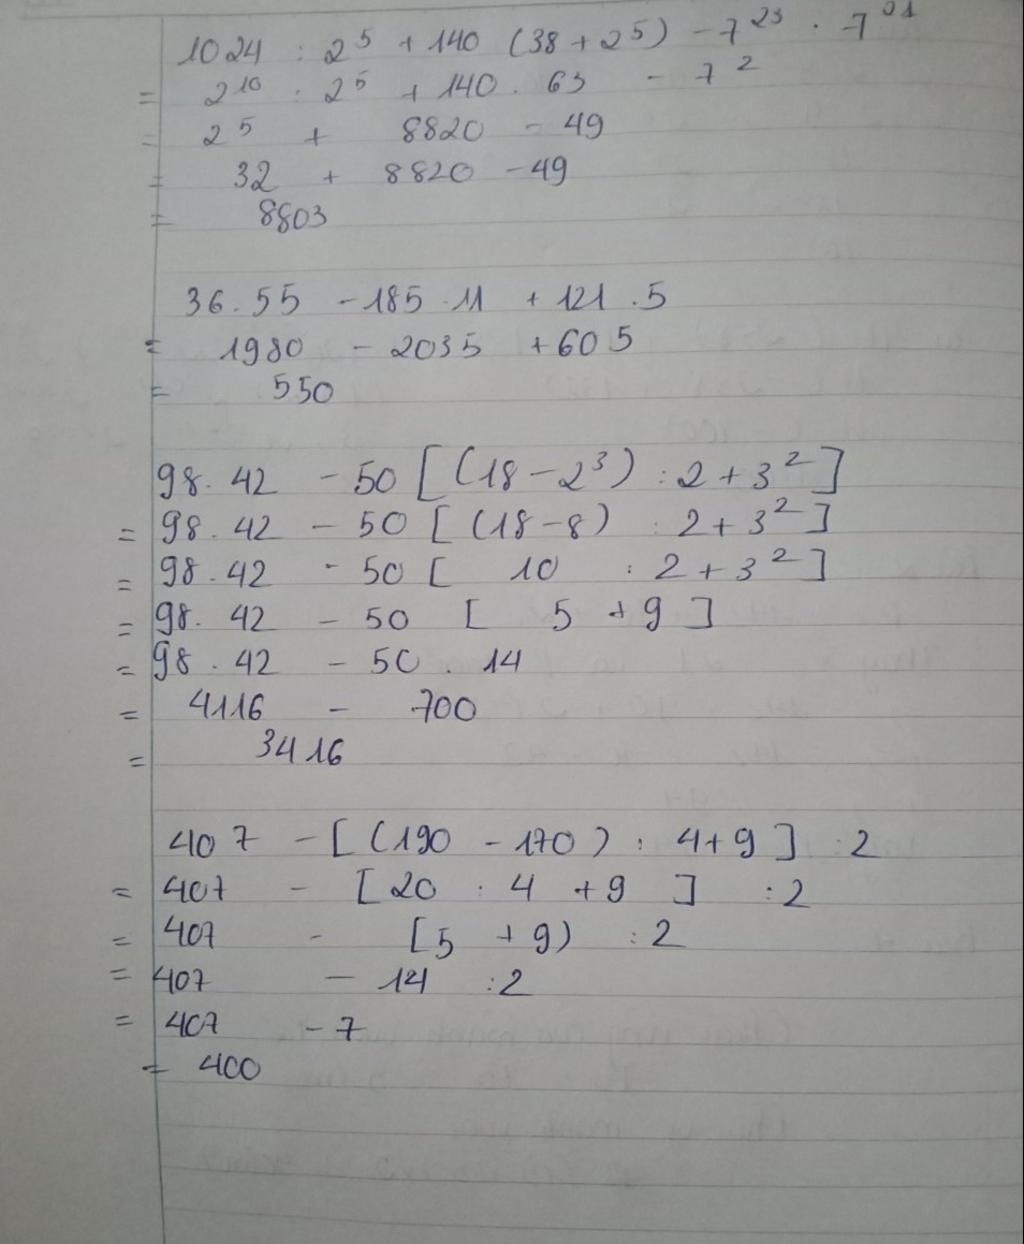 1024 : 2⁵ + 140 (38 + 2⁵) - 7²³ . 7²¹
= 2¹⁰ : 2⁵ + 140 . 63 - 7²
= 2⁵ + 8820 - 49
= 32 + 8820 - 49
= 8803
36 . 55 - 185 . 11 + 121 . 5
= 1980 - 2035 + 605
= 550
98 . 42 - 50 [(18 - 2³) : 2 + 3²]
= 98 . 42 - 50 [(18 - 8) : 2 + 3²]
= 98 . 42 - 50 [ 10 : 2 + 3²]
= 98 . 42 - 50 [ 5 + 9 ]
= 98 . 42 - 50 . 14
= 4116 - 700
= 3416
407 - [(190 - 170) : 4 + 9 ] : 2
= 407 - [20 : 4 + 9 ] : 2
= 407 - [5 + 9) : 2
= 407 - 14 : 2
= 407 - 7
= 400